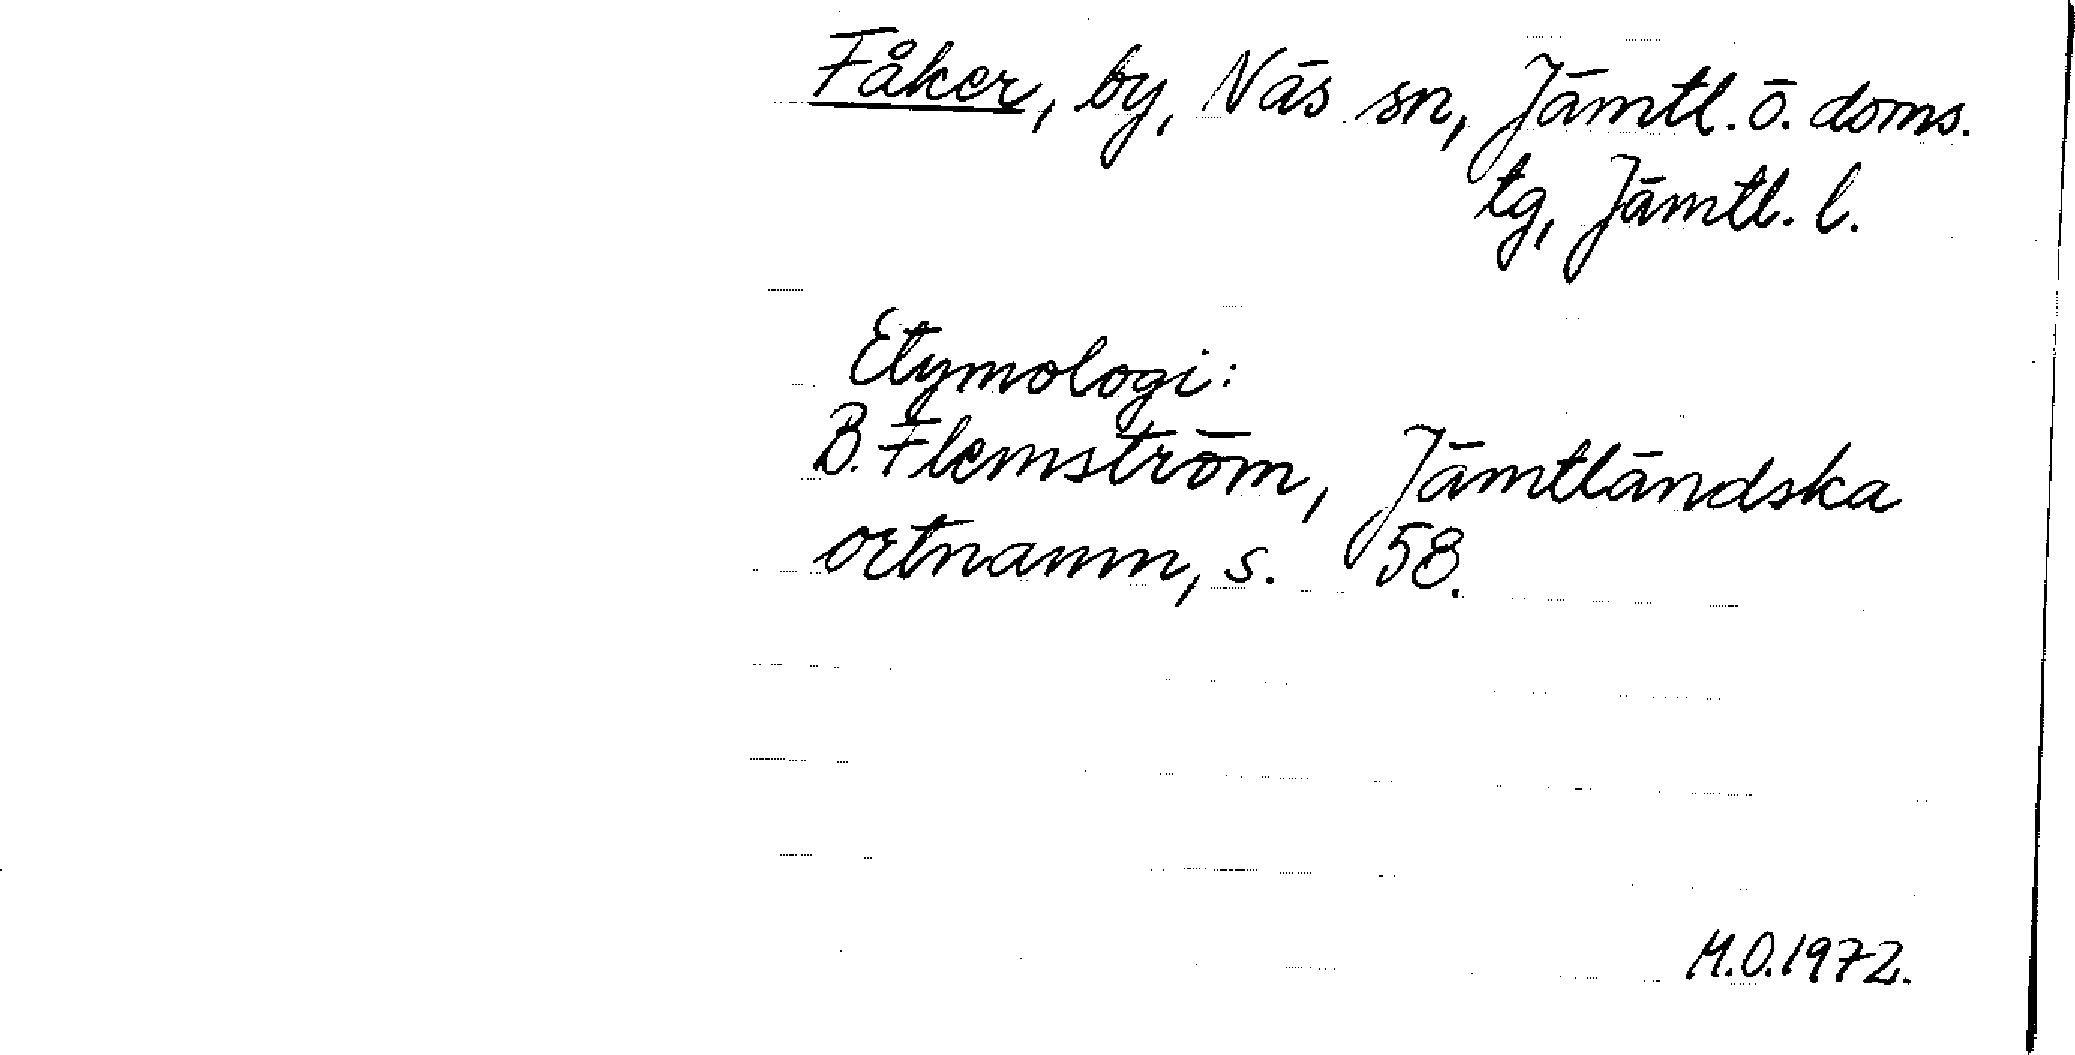 Fåker, by, Näs sn, Jämtl. ö. doms.
tg, Jämtl. l.
Etymologi:
B. Flemström, Jämtländska
ortnamn, s. 58.
M.O.1972.